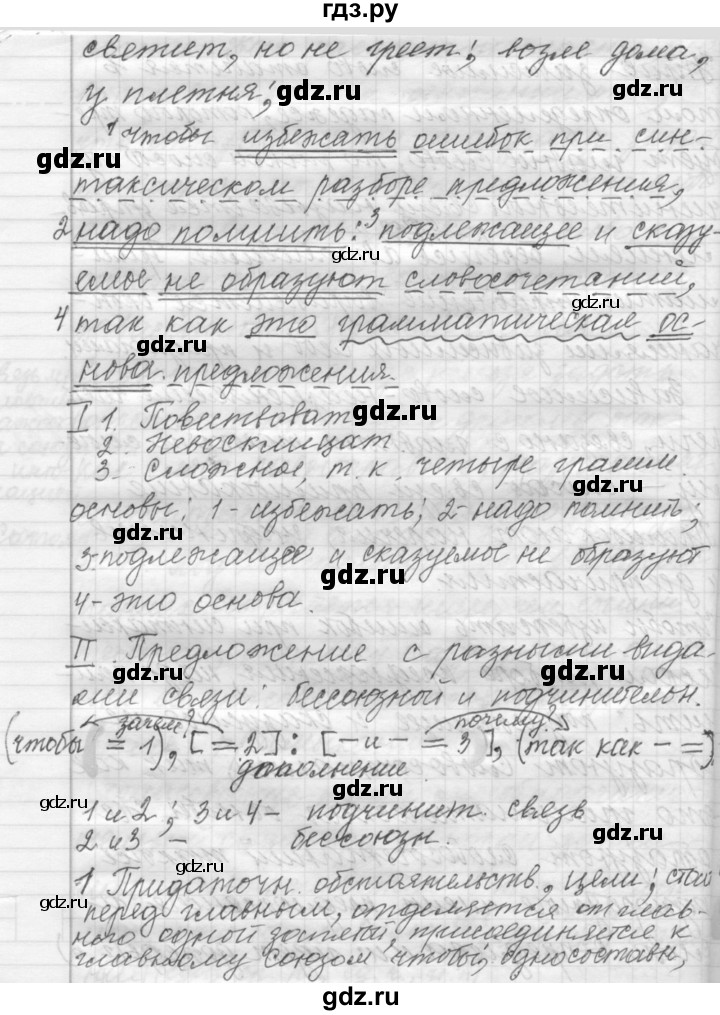 гдз.ру
светит, но не греет; возле дома,
у плетня;
1 чтобы избежать ошибок при син-
таксическом разборе предложения,
2 надо помнить: 3 подлежащее и сказу-
емое не образуют словосочетаний,
4 так как это грамматическая ос-
нова предложения.
I 1. Повествоват.
2. Невосклицат.
3. Сложное, т. к. четыре грамм.
основы: 1 - избежать; 2 - надо помнить;
3 - подлежащее и сказуемое не образуют
4 - это основа.
II. Предложение с разными вида-
ми связи: бессоюзной и подчинительн.
зачем? почему?
(чтобы = 1), [= 2]: [— и — = 3], (так как — =)
дополнение
1 и 2; 3 и 4 - подчинит. связь
2 и 3 - бессоюзн.
1 Придаточн. обстоятельств., цели; стоит
перед главным, отделяется от глав-
ного одной запятой, присоединяется к
главному союзом чтобы; односоставн,
gdz.ru